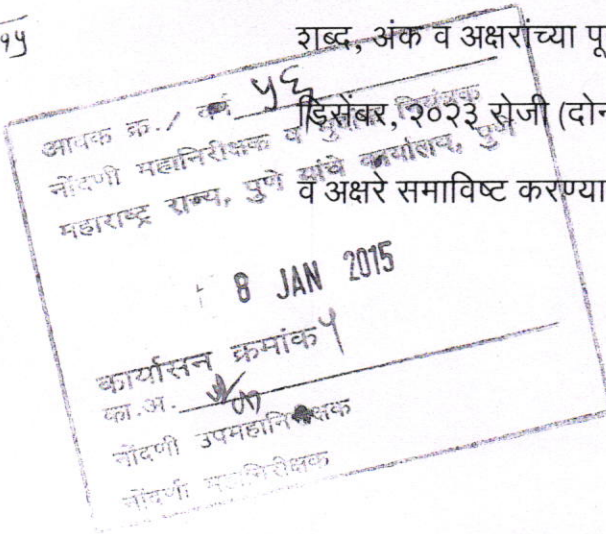 १५
शब्द, अंक व अक्षरांच्या पू
डिसेंबर, २०२३ रोजी (दोन
व अक्षरे समाविष्ट करण्या
आवक क्र./ वर्ग ५६
नोंदणी महानिरीक्षक व मुद्रांक नियंत्रक
महाराष्ट्र राज्य, पुणे यांचे कार्यालय, पुणे
8 JAN 2015
कार्यासन क्रमांक ५
का.अ.
नोंदणी उपमहानिरीक्षक
नोंदणी महानिरीक्षक